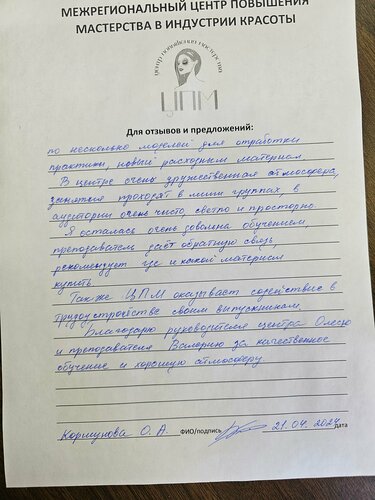 МЕЖРЕГИОНАЛЬНЫЙ ЦЕНТР ПОВЫШЕНИЯ
МАСТЕРСТВА В ИНДУСТРИИ КРАСОТЫ
центр повышения мастерства
ЦПМ
Для отзывов и предложений:
по несколько моделей для отработки
практики, новый расходный материал.
В центре очень дружественная атмосфера,
занятия проходят в мини группах, в
аудитории очень чисто, светло и просторно.
Я осталась очень довольна обучением,
преподаватель даёт обратную связь,
рекомендует где и какой материал
купить.
Также ЦПМ оказывает содействие в
трудоустройстве своим выпускникам.
Благодарю руководителя центра Олесю
и преподавателя Валерию за качественное
обучение и хорошую атмосферу.
Коршунова О. А. ФИО/подпись 21.04.2024 дата